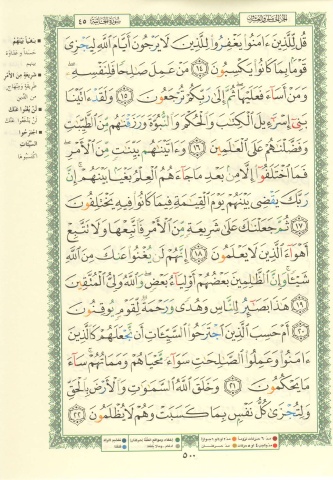 الجزء الخامس والعشرون
سورة الجاثية
٤٥
قُل لِّلَّذِينَ ءَامَنُوا۟ يَغْفِرُوا۟ لِلَّذِينَ لَا يَرْجُونَ أَيَّامَ ٱللَّهِ لِيَجْزِىَ
قَوْمًۢا بِمَا كَانُوا۟ يَكْسِبُونَ ١٤ مَنْ عَمِلَ صَٰلِحًا فَلِنَفْسِهِۦ
وَمَنْ أَسَآءَ فَعَلَيْهَا ثُمَّ إِلَىٰ رَبِّكُمْ تُرْجَعُونَ ١٥ وَلَقَدْ ءَاتَيْنَا
بَنِىٓ إِسْرَٰٓءِيلَ ٱلْكِتَٰبَ وَٱلْحُكْمَ وَٱلنُّبُوَّةَ وَرَزَقْنَٰهُم مِّنَ ٱلطَّيِّبَٰتِ
وَفَضَّلْنَٰهُمْ عَلَى ٱلْعَٰلَمِينَ ١٦ وَءَاتَيْنَٰهُم بَيِّنَٰتٍ مِّنَ ٱلْأَمْرِ
فَمَا ٱخْتَلَفُوٓا۟ إِلَّا مِنۢ بَعْدِ مَا جَآءَهُمُ ٱلْعِلْمُ بَغْيًۢا بَيْنَهُمْ إِنَّ
رَبَّكَ يَقْضِى بَيْنَهُمْ يَوْمَ ٱلْقِيَٰمَةِ فِيمَا كَانُوا۟ فِيهِ يَخْتَلِفُونَ
١٧ ثُمَّ جَعَلْنَٰكَ عَلَىٰ شَرِيعَةٍ مِّنَ ٱلْأَمْرِ فَٱتَّبِعْهَا وَلَا تَتَّبِعْ
أَهْوَآءَ ٱلَّذِينَ لَا يَعْلَمُونَ ١٨ إِنَّهُمْ لَن يُغْنُوا۟ عَنكَ مِنَ ٱللَّهِ
شَيْـًٔا وَإِنَّ ٱلظَّٰلِمِينَ بَعْضُهُمْ أَوْلِيَآءُ بَعْضٍ وَٱللَّهُ وَلِىُّ ٱلْمُتَّقِينَ
١٩ هَٰذَا بَصَٰٓئِرُ لِلنَّاسِ وَهُدًى وَرَحْمَةٌ لِّقَوْمٍ يُوقِنُونَ
٢٠ أَمْ حَسِبَ ٱلَّذِينَ ٱجْتَرَحُوا۟ ٱلسَّيِّـَٔاتِ أَن نَّجْعَلَهُمْ كَٱلَّذِينَ
ءَامَنُوا۟ وَعَمِلُوا۟ ٱلصَّٰلِحَٰتِ سَوَآءً مَّحْيَاهُمْ وَمَمَاتُهُمْ سَآءَ
مَا يَحْكُمُونَ ٢١ وَخَلَقَ ٱللَّهُ ٱلسَّمَٰوَٰتِ وَٱلْأَرْضَ بِٱلْحَقِّ
وَلِتُجْزَىٰ كُلُّ نَفْسٍۭ بِمَا كَسَبَتْ وَهُمْ لَا يُظْلَمُونَ ٢٢
بغيا بينهم
شريعة من الأمر
لن يغنوا عنك
اجترحوا
السيئات
اكتسبوها
٥٠٠